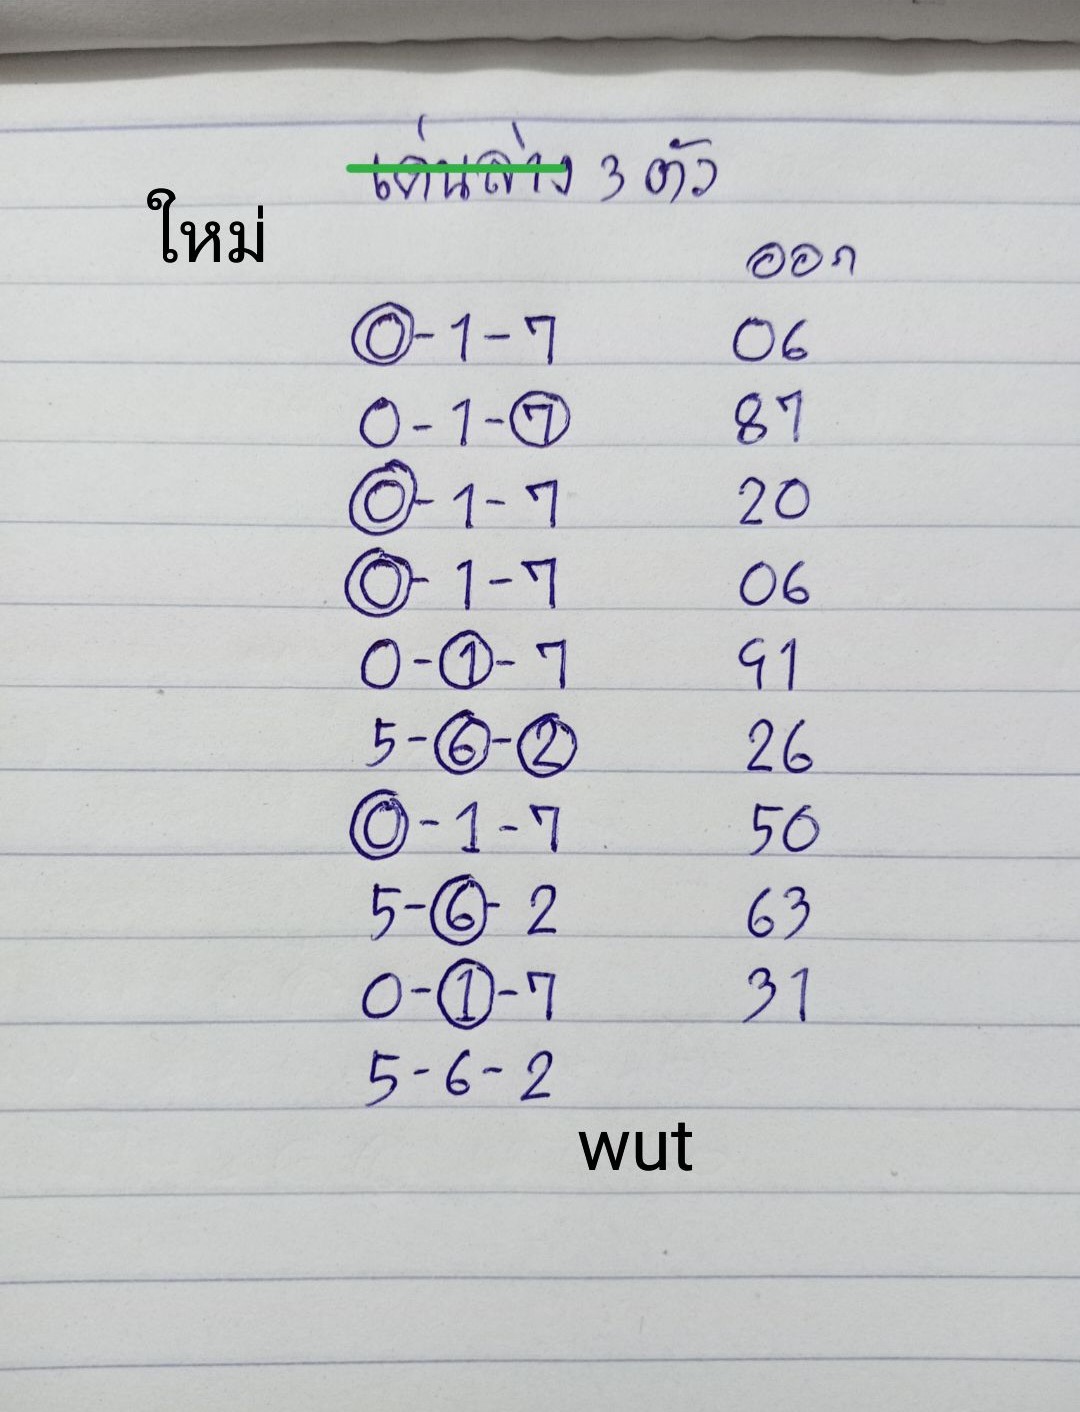 เด่นล่าง 3 ตัว
ใหม่
ออก
0-1-7 06
0-1-7 87
0-1-7 20
0-1-7 06
0-1-7 91
5-6-2 26
0-1-7 50
5-6-2 63
0-1-7 31
5-6-2
wut